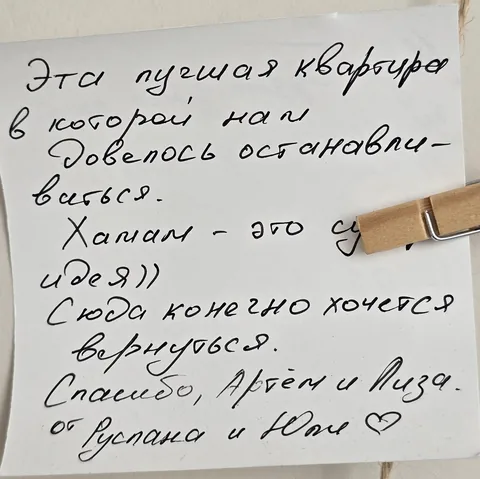 Эта лучшая квартира
в которой нам
довелось останавли-
ваться.
Хамам - это
идея))
Сюда конечно хочется
вернуться.
Спасибо, Артём и Лиза.
от Руслана и Юли ♡